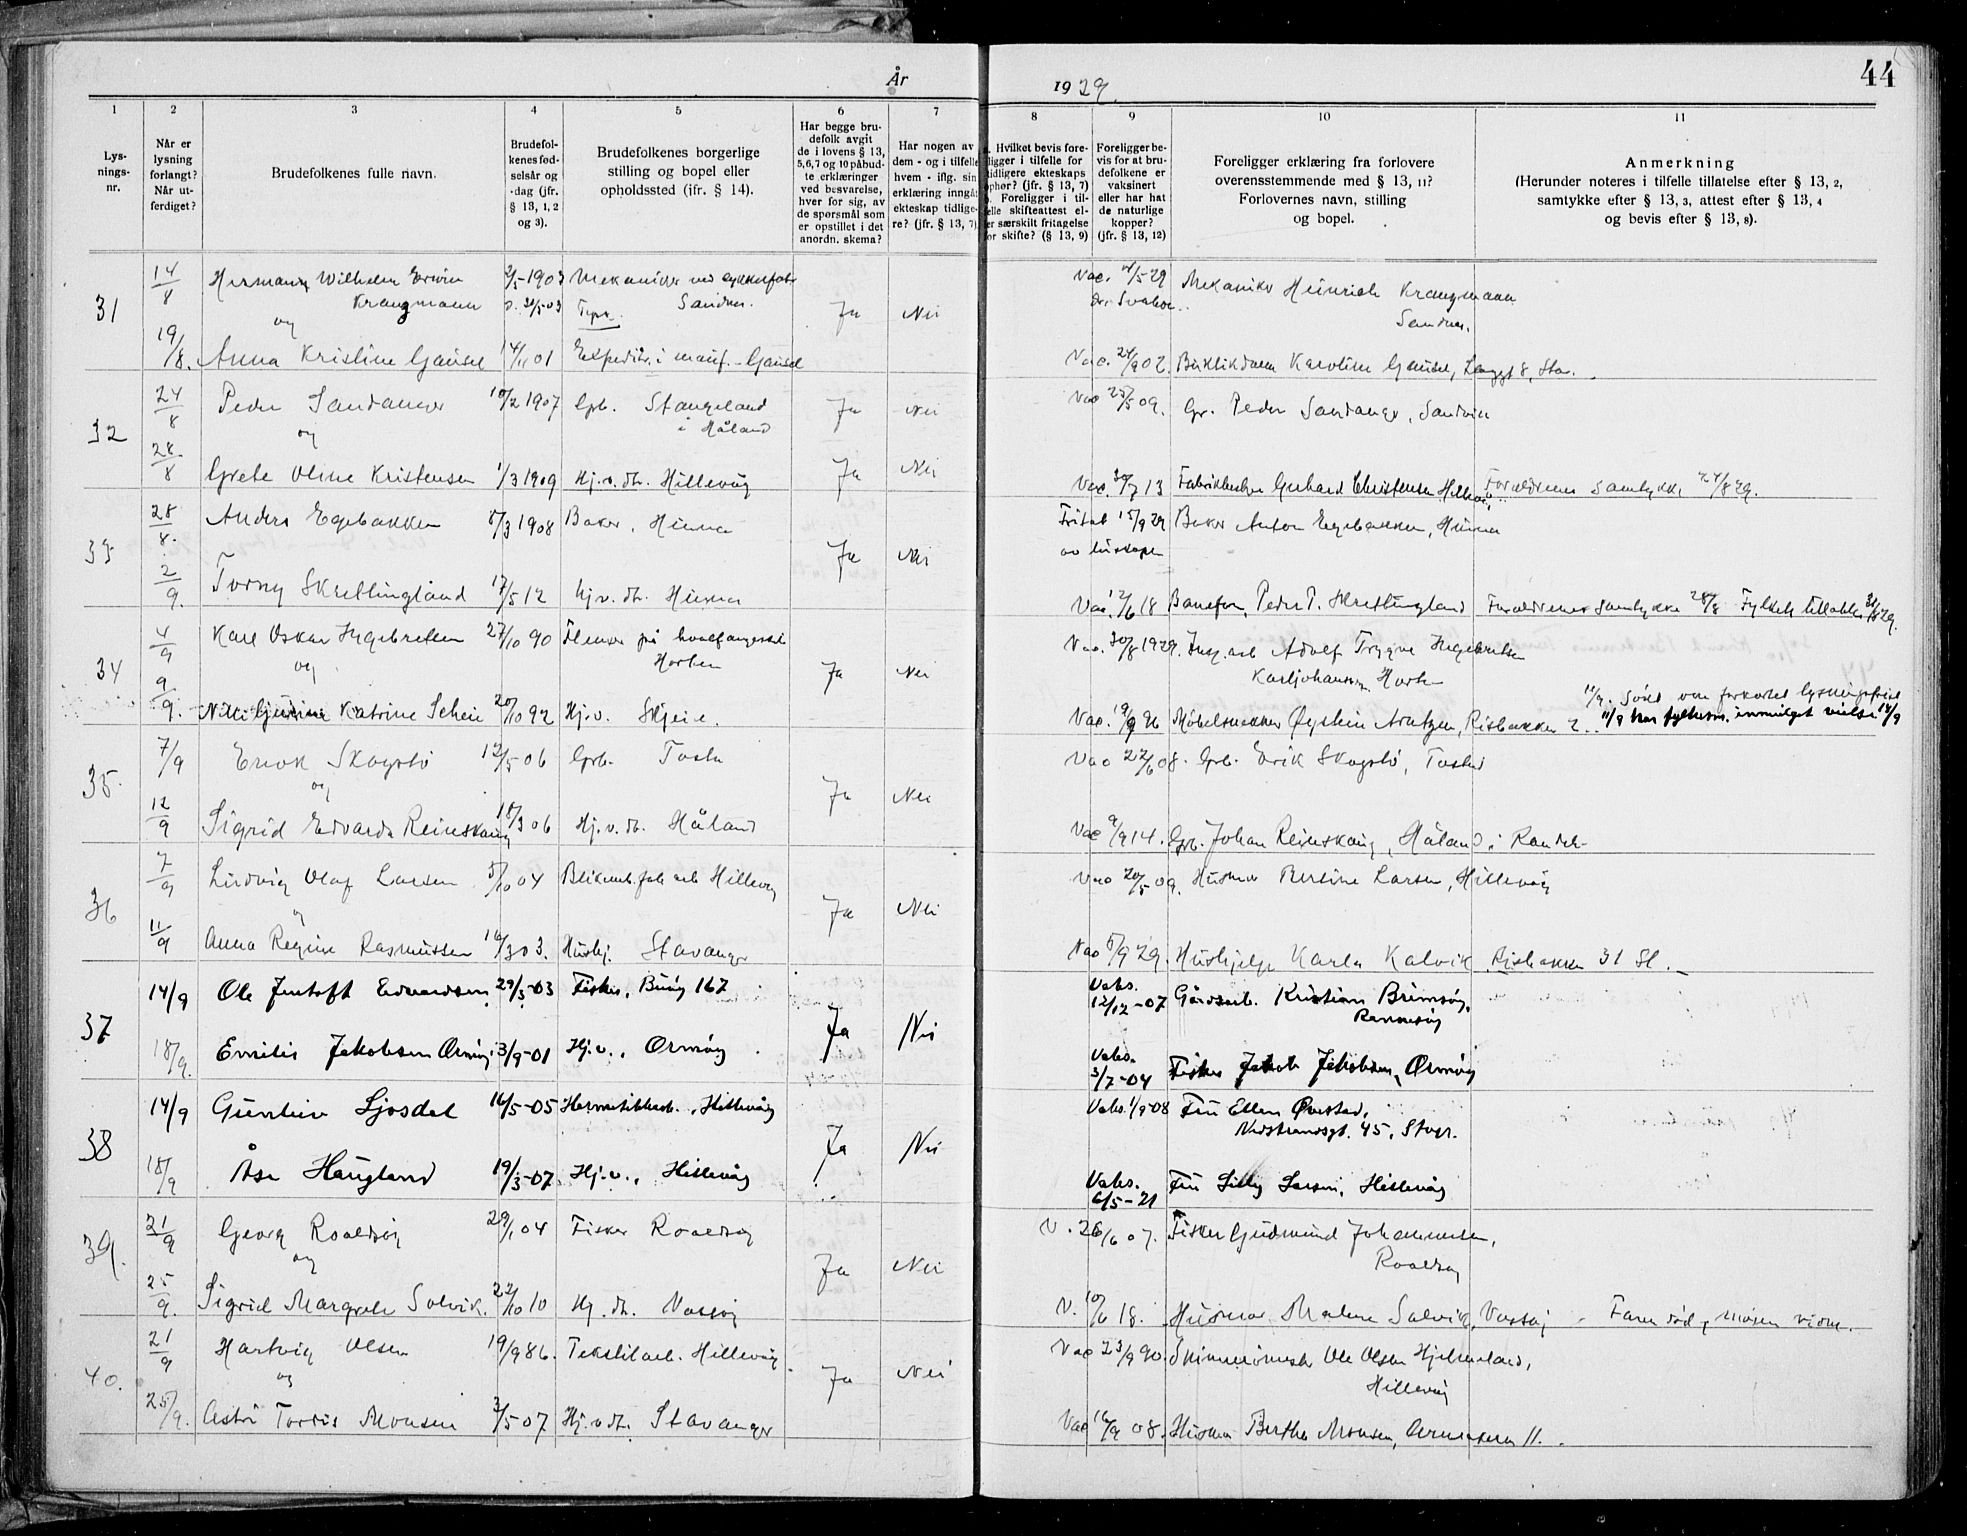 År 1929.
44
1 2 3 4 5 6 7 8 9 10 11
Lys-
nings-
nr.
Når er
lysning
forlangt?
Når ut-
ferdiget?
Brudefolkenes fulle navn.
Brudefol-
kenes fød-
selsår og
-dag (jfr.
§ 13, 1, 2
og 3).
Brudefolkenes borgerlige
stilling og bopel eller
opholdssted (ifr. § 14).
Har begge bru-
defolk avgit
de i lovens § 13,
5,6,7 og 10 påbud-
te erklæringer
ved besvarelse,
hver for sig, av
de spørsmål som
er opstillet i det
anordn. skema?
Har nogen av
dem - og i tilfelle
hvem - iflg. sin
erklæring inngåt
ekteskap tidlige-
re? (jfr. § 13, 7)
Hvilket bevis fore-
ligger i tilfelle for
tidligere ekteskaps
ophør? (jfr. § 13, 7)
Foreligger i til-
felle skifteattest el-
er særskilt fritagelse
for skifte? (§ 13, 9)
Foreligger be-
vis for at bru-
defolkene er
vaksinert
eller har hat
de naturlige
kopper?
(jfr. § 13, 12)
Foreligger erklæring fra forlovere
overensstemmende med § 13, 11?
Forlovernes navn, stilling
og bopel.
Anmerkning
(Herunder noteres i tilfelle tillatelse efter § 13, 2,
samtykke efter § 13, 3, attest efter § 13, 4
og bevis efter § 13, 8).
31 14/8 Hermann Wilhelm Erwin 2/5-1903 Mekaniker ved Vac. 4/5-29 Mekaniker Heinrich Krangmann
Krangmann Sandnes. Ja Nei Sandnes.
og
19/8. Anna Kristine Gausel 14/11 01 Expeditr. i manuf. - Gausel Vac. 24/9 02. Karoline Gausel, Langgt 8, Stav.
32 24/8 Peder Sandanger 10/2 1907 Grb. Stangeland Ja Nei Vac 25/5 09. Gr. Peder Sandanger, Sandvik
og i Håland
28/8 Grete Oline Kristensen 1/3 1909 Hj. v. dh. Hillevåg Ja Nei Vac. 30/7 13 Gerhard Christensen Foreldrenes samtykke 24/8 29.
33 28/8. Anders Egebakken 8/3 1908 Baker, Hinna Ja Nei Fritat 15/9 29 Baker Anton Egebakken, Hinna
2/9. Torny Skretlingland 17/5 12 hj. v. dh. Hinna Vac. 12/6 18 Peder P. Skretlingland Foreldrenes samtykke 28/8
34 4/9 Karl Oskar Ingebretsen 27/10 90 Ja Nei Vac. 30/8 1929. Adolf Trygve Ingebretsen
og Horten Karljohansvern Horten
9/9. Katrine Scheie 20/10 92 Hj. v. Skjeie. Vac. 19/9 96 Møbelsnekker Øystein Arntzen, Risbakken 2.
35. 7/9 Erik Skogstø 12/5 06 Grb. Tasta Ja Nei Vac 22/6 08. Grb. Erik Skogstø, Tasta
og
12/9 Sigrid Edvarda Reinskaug 18/3 06 Hj. v. dh. Håland Vac 9/9 14. Grb. Johan Reinskaug, Håland
36 7/9 Ludvig Olaf Larsen 5/10 04 Hillevåg Ja Nei Vac 20/5 09. Husmor Bertine Larsen, Hillevåg
og
11/9 Anna Regine Rasmussen 16/3 03. Hushj. Stavanger Vac 5/9 29. Hushjelp Karla Kalvik. Risbakken 31 St.
37 14/9 Ole Jentoft Edvardsen 29/3-03 Fisker, Buøy 167 Ja Nei Vaks. 12/12-07 Gårdsarb. Kristian Brimsøy,
Rennesøy
18/9. Emilie Jakobsen Ormøy 3/9-01 Hj. v., Ormøy Vaks. 3/7-04 Fisker Jakob Jakobsen, Ormøy
38 14/9 Gunstein Ljosdal 16/5-05 Hermetikkarb., Hillevåg Ja Nei Vaks. 1/9-08 Fru Ellen Øvestad,
Nedstrandsgt. 45, Stvgr.
18/9 Åse Haugland 19/3-07 Hj. v., Hillevåg Vaks. 6/5-21 Fru Lilly Larsen, Hillevåg
39. 21/9 Georg Roaldsøy 29/1 04 Fisker Roaldsøy Ja Nei V. 26/6 07. Fisker Gudmund Johannesen,
og Roaldsøy
25/9. Sigrid Margrete Solvik. 22/10 10 Hj. dh. Vassøy V. 10/6 18. Husmor Malene Solvik, Vassøy Faren død, moren vidne.
40. 21/9 Hartvig Olsen 19/9 86. Tekstilarb. Hillevåg Ja Nei Vac 23/9 90. Ole Olsen Hjelmeland,
og Hillevåg
25/9. Astri Tordis Monsen 3/5 07 Hj. v. dh. Stavanger Vac 16/9 08. Husmor Berthe Monsen